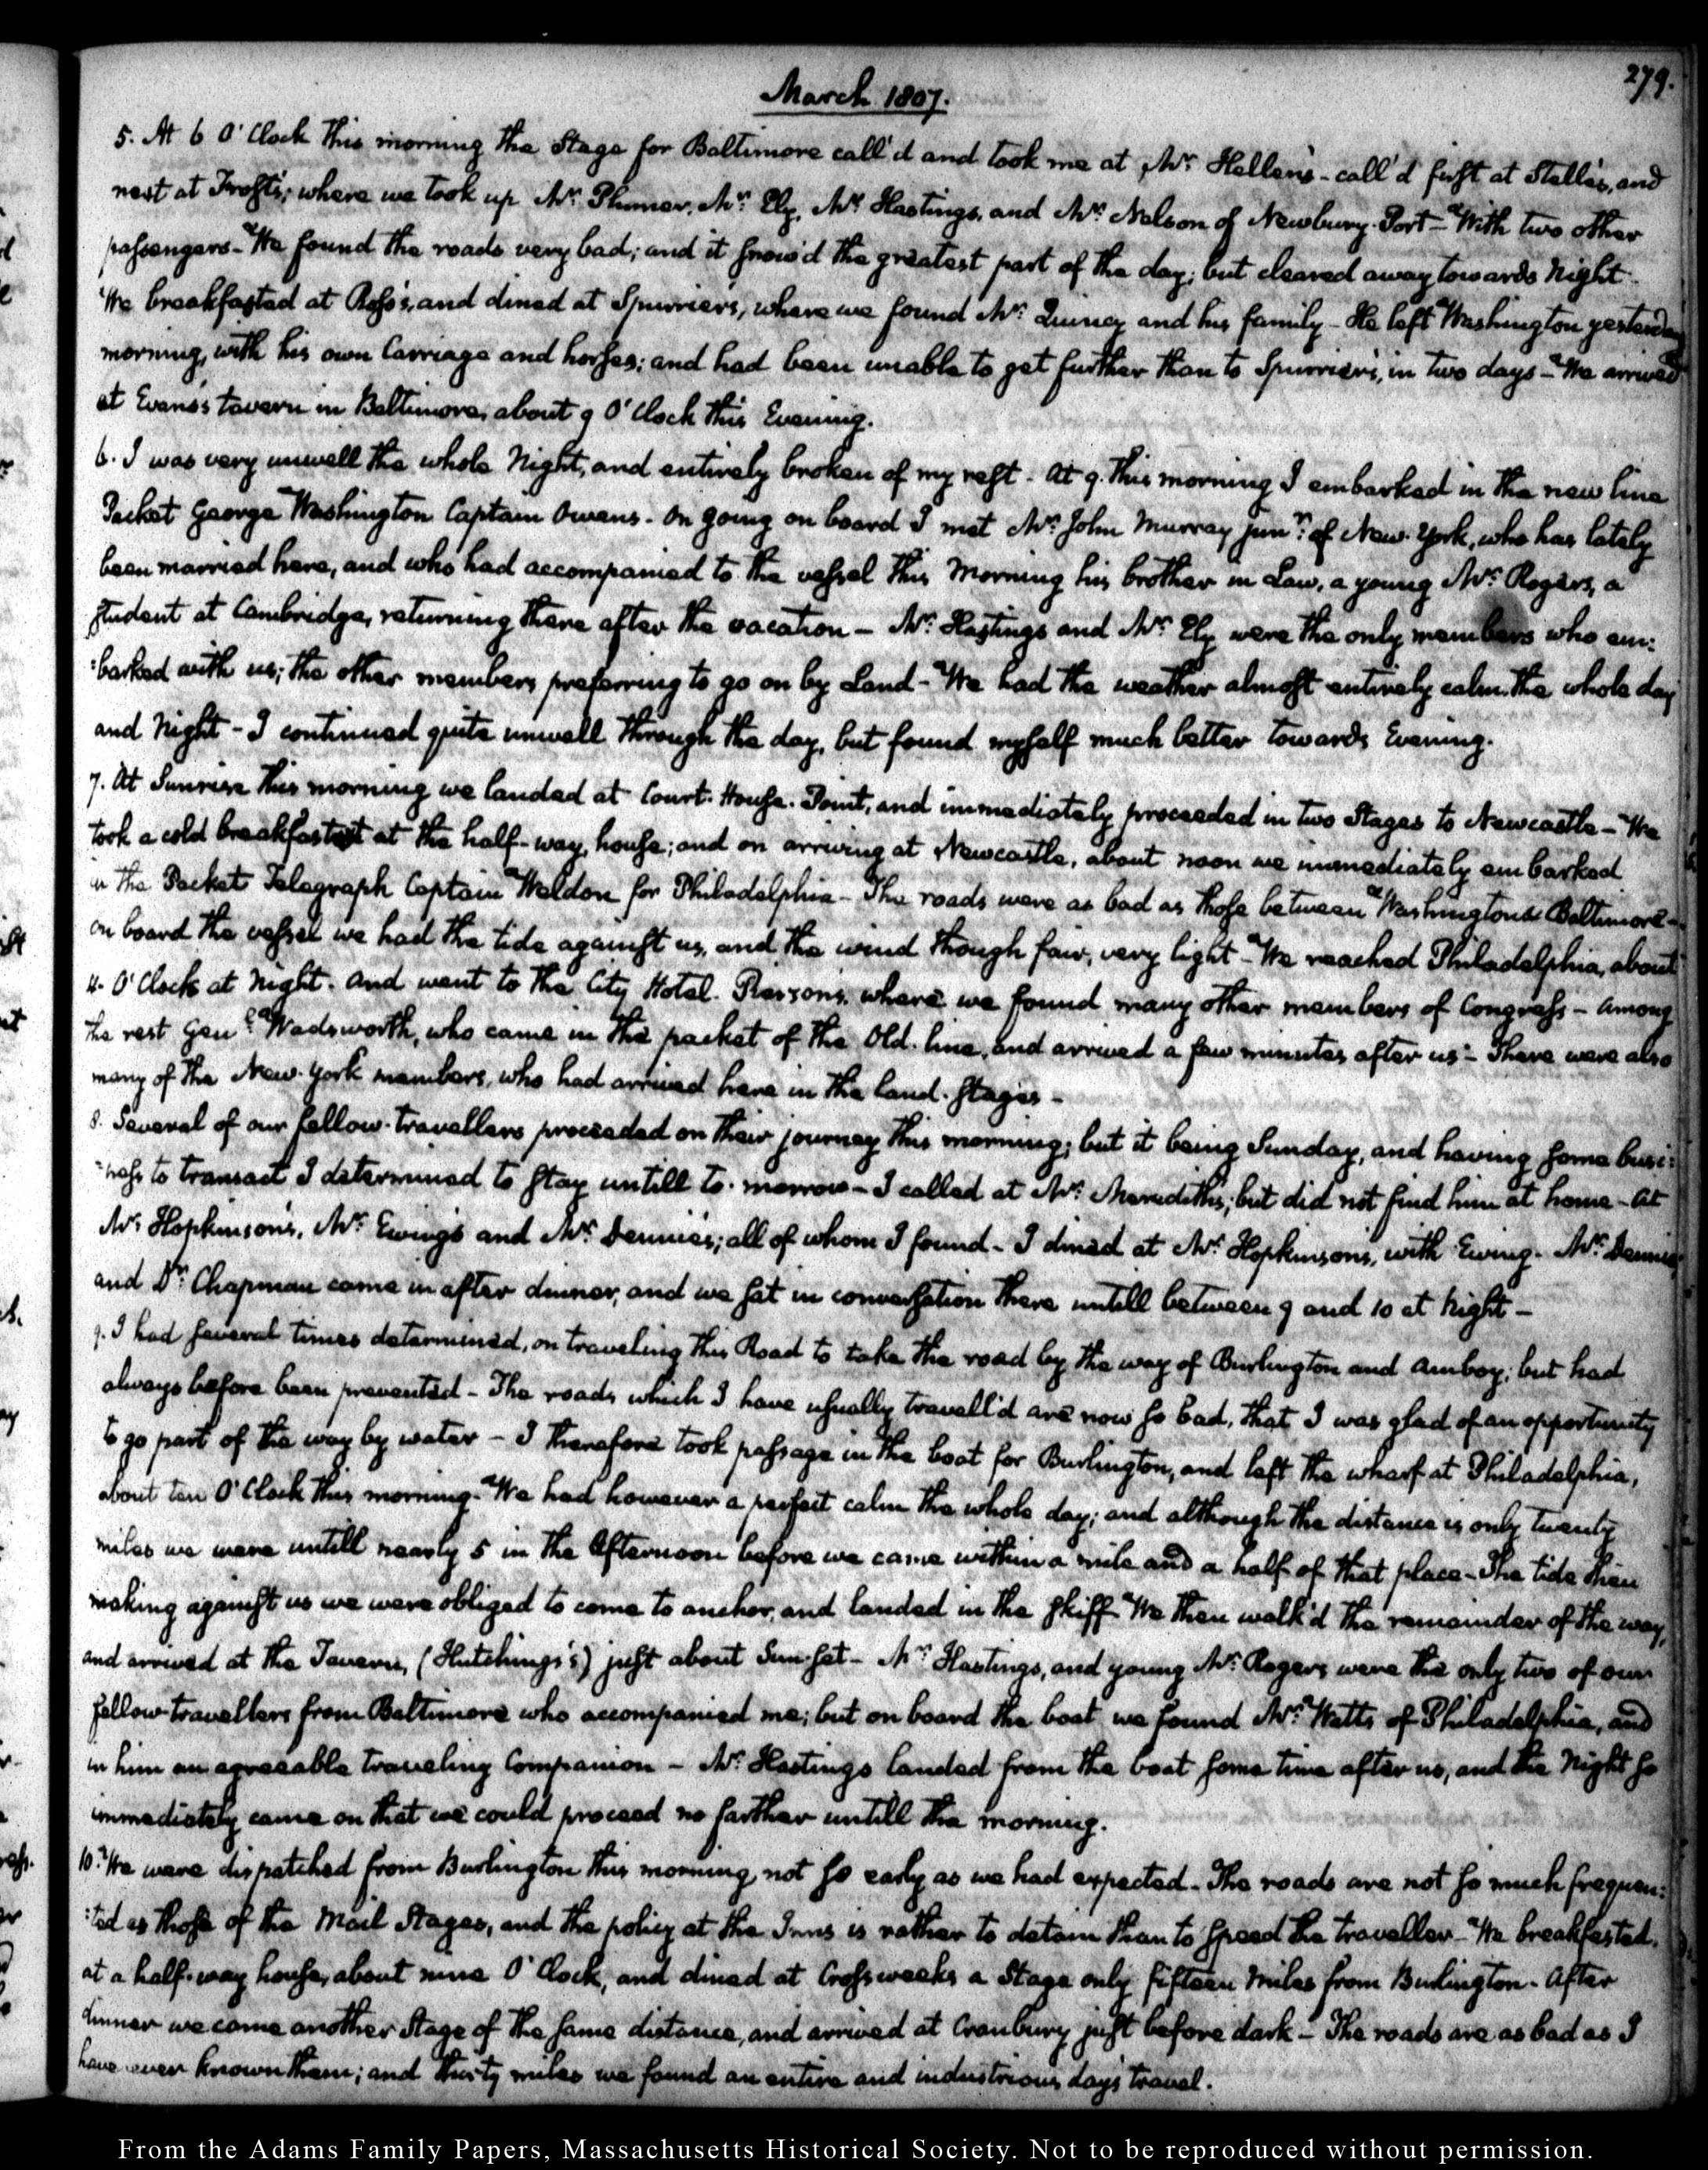 279.
March 1807.
5. At 6 O'Clock this morning the Stage for Baltimore call'd and took me at Mr: Hellen's - call'd first at Stelle's, and
next at Frost's; where we took up Mr: Plumer, Mr: Ely, Mr: Hastings, and Mr: Nelson of Newbury-Port - With two other
passengers - We found the roads very bad; and it snow'd the greatest part of the day; but cleared away towards Night.
We breakfasted at Ross's, and dined at Spurrier's, where we found Mr: Quincy and his family - He left Washington yesterday
morning, with his own Carriage and horses; and had been unable to get further than to Spurrier's, in two days - We arrived
at Evans's tavern in Baltimore, about 9 O'Clock this Evening.
6. I was very unwell the whole Night, and entirely broken of my rest - At 9. this morning I embarked in the new line
Packet George Washington Captain Owens - On going on board I met Mr: John Murray junr: of New-York, who has lately
been married here, and who had accompanied to the vessel this Morning his brother in Law, a young Mr: Rogers, a
student at Cambridge, returning there after the vacation - Mr: Hastings and Mr: Ely were the only members who em:
:barked with us; the other members preferring to go on by Land - We had the weather almost entirely calm the whole day
and Night - I continued quite unwell through the day, but found myself much better towards Evening.
7. At Sunrise this morning we landed at Court-House-Point, and immediately proceeded in two Stages to Newcastle - We
took a cold breakfast at the half-way house; and on arriving at Newcastle, about noon we immediately embarked
in the Packet Telegraph Captain Weldon for Philadelphia - The roads were as bad as those between Washington & Baltimore -
on board the vessel we had the tide against us, and the wind though fair, very light - We reached Philadelphia, about
4. O'Clock at Night. and went to the City Hotel. Pierson's. where we found many other members of Congress - Among
the rest Genl: Wadsworth, who came in the packet of the Old-line, and arrived a few minutes after us - There were also
many of the New-York members, who had arrived here in the land-stages -
8. Several of our fellow-travellers proceeded on their journey this morning; but it being Sunday, and having some busi:
:ness to transact I determined to stay untill to-morrow - I called at Mr: Meredith's; but did not find him at home - At
Mr: Hopkinson's, Mr: Ewing's and Mr: Dennie's; all of whom I found - I dined at Mr: Hopkinson's, with Ewing - Mr: Dennie
and Dr: Chapman came in after dinner, and we sat in conversation there untill between 9 and 10 at Night -
9. I had several times determined, on traveling this Road to take the road by the way of Burlington and Amboy; but had
always before been prevented - The roads which I have usually travell'd are now so bad, that I was glad of an opportunity
to go part of the way by water - I therefore took passage in the boat for Burlington, and left the wharf at Philadelphia,
about ten O'Clock this morning - We had however a perfect calm the whole day; and although the distance is only twenty
miles we were untill nearly 5 in the Afternoon before we came within a mile and a half of that place - The tide then
making against us we were obliged to come to anchor, and landed in the skiff - We then walk'd the remainder of the way,
and arrived at the Tavern, (Hutchings's) just about Sun-set - Mr: Hastings, and young Mr: Rogers were the only two of our
fellow-travellers from Baltimore who accompanied me; but on board the boat we found Mr: Watts of Philadelphia, and
in him an agreeable traveling Companion - Mr: Hastings landed from the boat some time after us, and the Night so
immediately came on that we could proceed no farther untill the morning.
10. We were dispatched from Burlington this morning, not so early as we had expected - The roads are not so much frequen:
:ted as those of the Mail Stages, and the policy at the Inns is rather to detain than to speed the traveller - We breakfasted
at a half-way house, about nine O'Clock, and dined at Crossweeks a Stage only fifteen miles from Burlington - After
dinner we came another Stage of the same distance, and arrived at Cranbury just before dark - The roads are as bad as I
have ever known them; and thirty miles we found an entire and industrious day's travel.
From the Adams Family Papers, Massachusetts Historical Society. Not to be reproduced without permission.